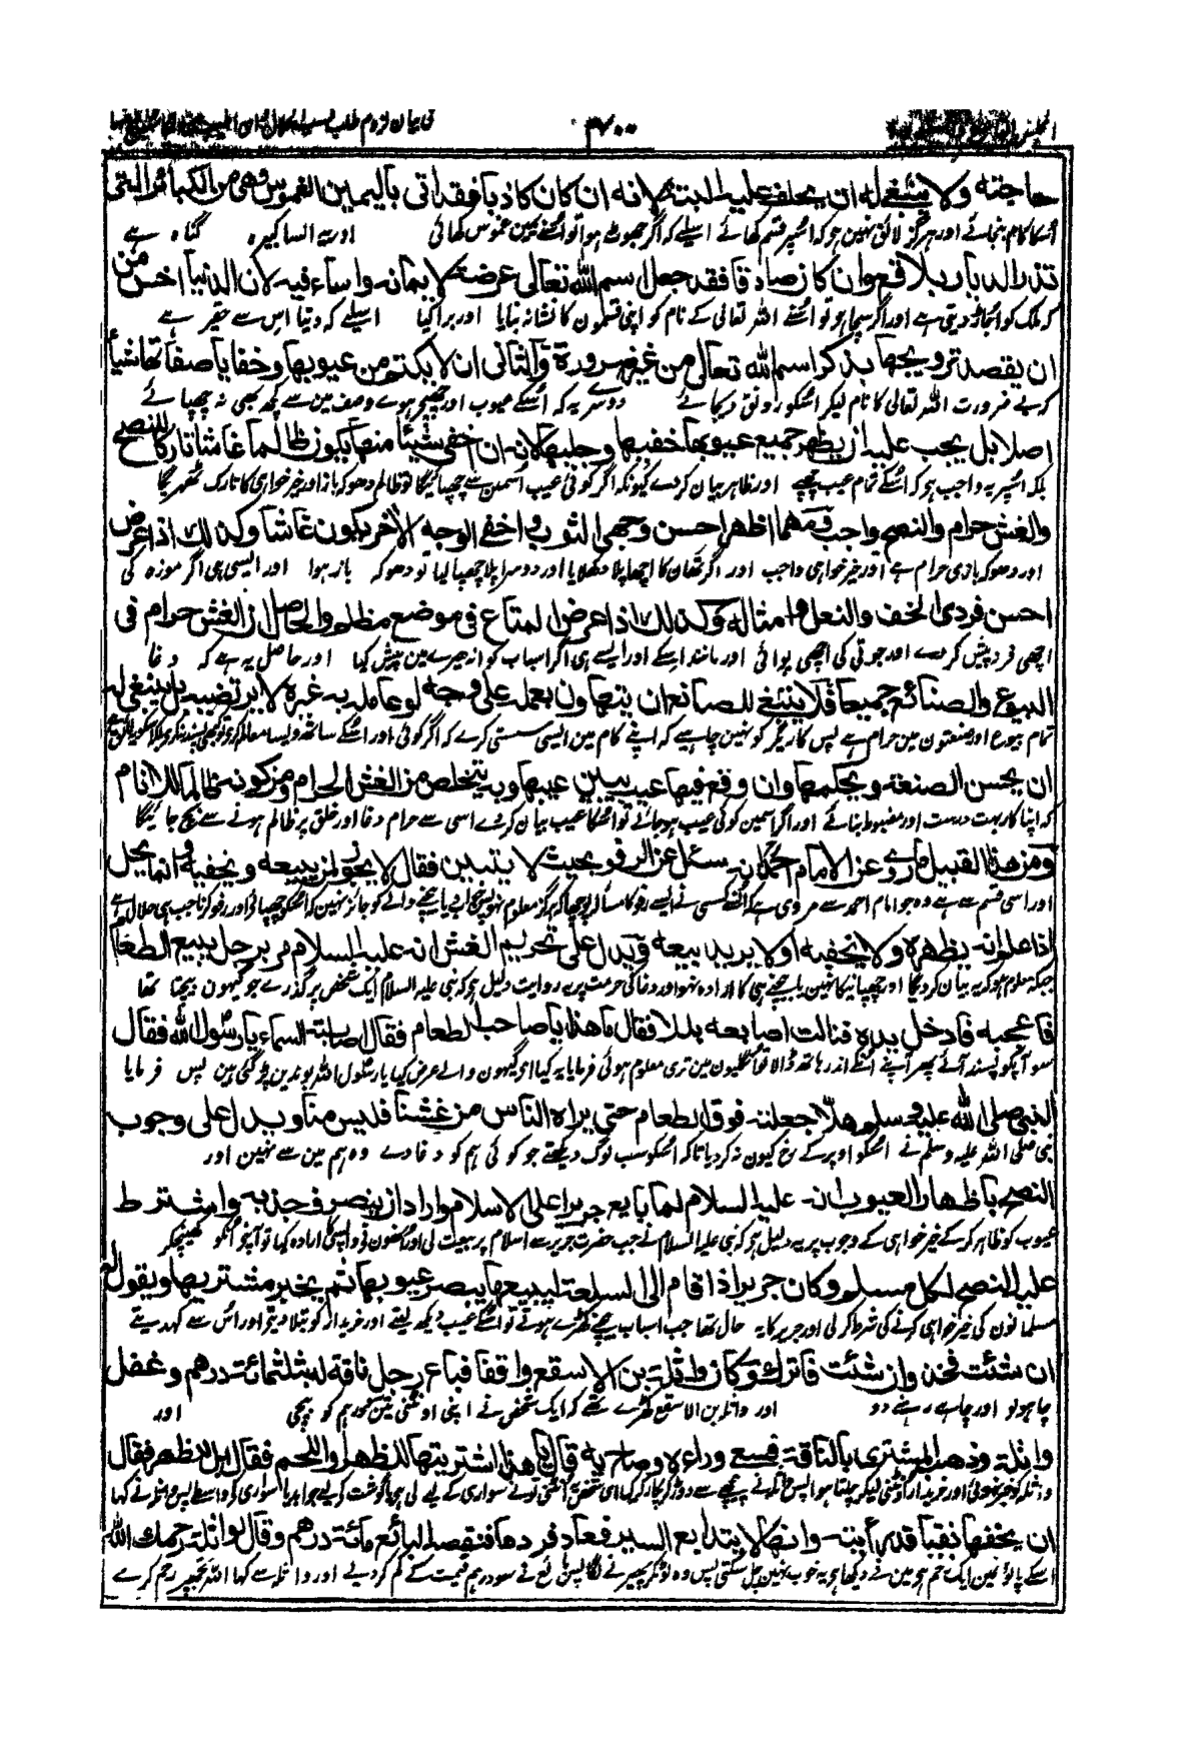 في بيان لزوم طلب كسب الحلال
حاجته ولا ينبغي له ان يحلف عليه البتة لانه ان كان كاذبا فقد اتى باليمين الغموس وهي من الكبائر التي
اسکا کام بنجائے اور ہرگز لائق نہین ہو کہ اسپر قسم کھائے اسیلے کہ اگر جھوٹ ہوا تو اسنے یمین غموس کھائی اور یہ ایسا کبیرہ گناہ ہے
تذر الديار بلاقع وان كان صادقا فقد جعل اسم الله تعالى عرضة لايمانه واساء فيه لان الدنيا اخس من
کہ ملک کو اجاڑ دیتی ہے اور اگر سچا ہو تو اسنے اللہ تعالی کے نام کو اپنی قسمون کا نشانہ بنایا اور برا کیا اسیلے کہ دنیا اس سے حقیر ہے
ان يقصد ترويجها بذكر اسم الله تعالى من غير ضرورة والثاني ان لا يكتم من عيوبها وخفايا صفاتها شيأ
کہ بے ضرورت اللہ تعالی کا نام لیکر اسکو رونق دیجائے دوسرے یہ کہ اسکے عیوب اور چھپے ہوے وصف مین سے کچھ بھی نہ چھپائے
اصلا بل يجب عليه ان يظهر جميع عيوبها خفيها وجليها لانه ان اخفى شيئا منها يكون ظالما غاشا تاركا للنصح
بلکہ اسپر یہ واجب ہو کہ اسکے تمام عیب چھپے اور ظاہر بیان کردے کیونکہ اگر کوئی عیب اسمین سے چھپائیگا تو ظالم دھوکہ باز اور خیر خواہی کا تارک ٹھہریگا
والغش حرام والنصح واجب فمهما اظهر احسن وجهي الثوب واخفى الوجه الآخر يكون غاشا وكذلك اذا عرض
اور دھوکہ بازی حرام ہے اور خیر خواہی واجب اور اگر تھان کا اچھا پلا دکھلایا اور دوسرا پلا چھپا لیا تو دھوکہ باز ہوا اور ایسی ہی اگر موزہ کی
احسن فردي الخف والنعل وامثاله وكذلك اذا عرض المتاع في موضع مظلم والحاصل ان الغش حرام في
اچھی فرد پیش کردے اور جوتی کی اچھی پوائی اور مانند اسکے اور ایسے ہی اگر اسباب کو اندھیرے مین پیش کیا اور حاصل یہ ہے کہ دغا
البيوع والصنائع جميعا فلا ينبغي للصانع ان يتهاون بعمله على وجه لو عامله به غيره لا يرتضيه بل ينبغي له
تمام بیوع اور صنعتون مین حرام ہے پس کاریگر کو نہین چاہیے کہ اپنے کام مین ایسی سستی کرے کہ اگر کوئی اور اسکے ساتھ ویسا معاملہ کرے تو کبھی پسند نکرے بلکہ اسکو لائق ہے
ان يحسن الصنعة ويحكمها وان وقع فيها عيب يبين عيبها وبه يتخلص من الغش الحرام ومن كونه ظالما للانام
کہ اپنا کار بہت درست اور مضبوط بنائے اور اگر اسمین کوئی عیب ہوجائے تو اسکا عیب بیان کردے اسی سے حرام دغا اور خلق پر ظالم ہونے سے بچ جائیگا
ومن هذا القبيل ما روي عن الامام احمد انه سئل عن الرفو بحيث لا يتبين فقال لا يجوز لمن يبيعه ويخفيه وانما يحل
اور اسی قسم سے ہے وہ جو امام احمد سے مروی ہے کہ انسے کسی نے ایسے رفو کا مسئلہ پوچھا کہ ہرگز معلوم نہو پس جواب دیا بیچنے والے کو جائز نہین کہ اسکو چھپائے اور رفو کرنا جب ہی حلال ہے
اذا علم انه يظهره ولا يخفيه اولا يريد بيعه ويدل على تحريم الغش انه عليه السلام مر برجل يبيع الطعام
جبکہ معلوم ہو کہ یہ بیان کردیگا اور چھپانیکا نہین یا بیچنے ہی کا ارادہ نہو اور دغا کی حرمت پر یہ روایت دلیل ہو کہ نبی علیہ السلام ایک شخص پر گذرے جو گیہون بیچتا تھا
فاعجبه فادخل يده فنالت اصابعه بللا فقال ما هذا يا صاحب الطعام فقال اصابته السماء يا رسول الله فقال
سو آپکو پسند آئے پھر آپنے انکے اندر ہاتھ ڈالا تو انگلیون مین تری معلوم ہوئی فرمایا یہ کیا اے گیہون والے عرض کیا یا رسول اللہ بوندین پڑگئی ہین پس فرمایا
النبي صلى الله عليه وسلم هلا جعلته فوق الطعام حتى يراه الناس من غشنا فليس منا ويدل على وجوب
نبی صلی اللہ علیہ وسلم نے اسکو اوپر کے رخ کیون نہ کردیا تاکہ اسکو سب لوگ دیکھتے جو کوئی ہم کو دغا دے وہ ہم مین سے نہین اور
النصح باظهار العيوب انه عليه السلام لما بايع جريرا على الاسلام واراد ان ينصرف جذبه واشترط
عیوب کو ظاہر کرکے خیر خواہی کے وجوب پر یہ دلیل ہو کہ نبی علیہ السلام نے جب حضرت جریر سے اسلام پر بیعت لی اور انھون نے واپسی کا ارادہ کیا تو آپنے انکو کھینچکر
عليه النصح لكل مسلم وكان جرير اذا قام الى السلعة ليبيعها يبصر عيوبها ثم يخبر مشتريها ويقول له
مسلمانون کی خیر خواہی کرنے کی شرط کرلی اور جریر کا یہ حال تھا جب اسباب بیچنے کھڑے ہوتے تو اسکے عیب دیکھ لیتے اور خریدار کو بتلا دیتے اور اس سے کہدیتے
ان شئت فخذ وان شئت فاترك وكان واثلة بن الاسقع واقفا فباع رجل ناقة له بثلثمائة درهم وغفل
چاہو لو اور چاہے رہنے دو اور واثلہ بن الاسقع کھڑے تھے کہ ایک شخص نے اپنی اونٹنی تین سو درہم کو بیچی اور
واثلة وذهب المشتري بالناقة فسعى وراءه وصاح به قال يا هذا اشتريتها للظهر او للحم فقال بل للظهر فقال
واثلہ کو خبر نہوئی اور خریدار اونٹنی لیکر چلتا ہوا پس واثلہ نے پیچھے سے دوڑ کر پکار کر کہا اے شخص یہ اونٹنی تونے سواری کے لیے لی ہے یا گوشت کے لیے جواب دیا سواری کے واسطے پس واثلہ نے کہا
ان بخفها نقبا قد رأيته وانها لا يتتابع السير فعاد فردها فنقصه البائع مائة درهم وقال لواثلة رحمك الله
اسکے پاؤنمین ایک زخم ہو مین نے دیکھا ہو یہ خوب نہین چل سکتی پس وہ لوٹکر پھیرنے لگا پس بائع نے سو درہم قیمت کے کم کردیے اور واثلہ سے کہا اللہ تجھپر رحم کرے